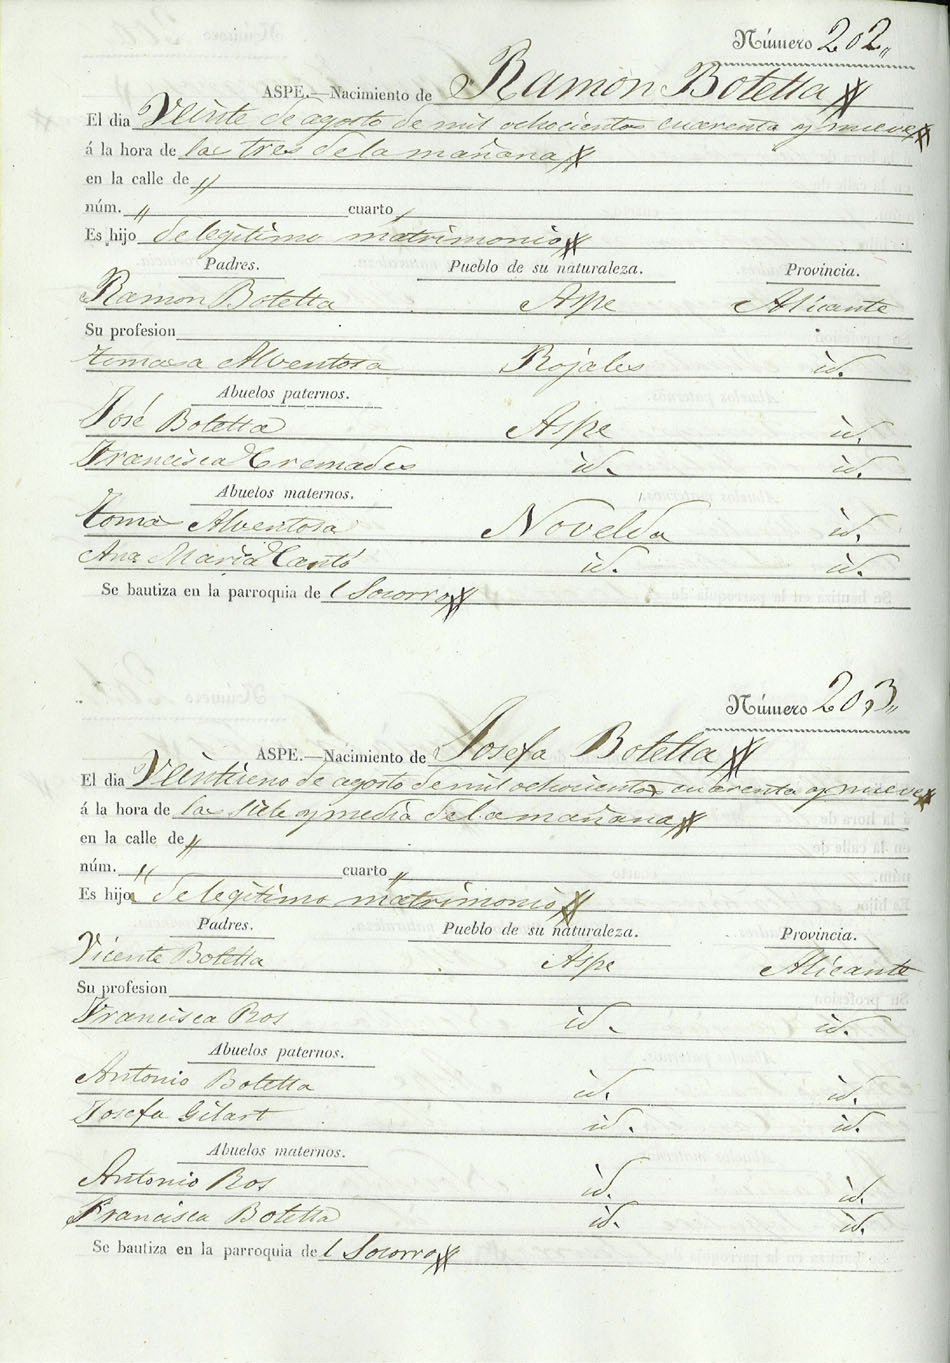 Número 202„
ASPE.—Nacimiento de Ramon Botella
El dia Veinte de agosto de mil ochocientos cuarenta y nueve
á la hora de las tres de la mañana
en la calle de „
núm. „ cuarto „
Es hijo de legitimo matrimonio
Padres. Pueblo de su naturaleza. Provincia.
Ramon Botella Aspe Alicante
Su profesion
tomasa Alventosa Rojales id.
Abuelos paternos.
José Botella Aspe id.
Francisca Cremades id. id.
Abuelos maternos.
toma Alventosa Novelda id.
Ana Maria Cantó id. id.
Se bautiza en la parroquia de l Socorro
Número 203„
ASPE.—Nacimiento de Josefa Botella
El dia Veintiuno de agosto de mil ochocientos cuarenta y nueve
á la hora de las siete y media de la mañana
en la calle de „
núm. „ cuarto „
Es hijo de legitimo matrimonio
Padres. Pueblo de su naturaleza. Provincia.
Vicente Botella Aspe Alicante
Su profesion
Francisca Ros id. id.
Abuelos paternos.
Antonio Botella id. id.
Josefa Gilart id. id.
Abuelos maternos.
Antonio Ros id. id.
Francisca Botella id. id.
Se bautiza en la parroquia de l Socorro